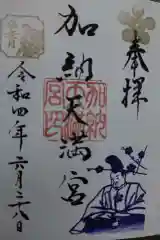 奉拝
加納天満宮
加納
天満
宮印
令和四年六月二十八日